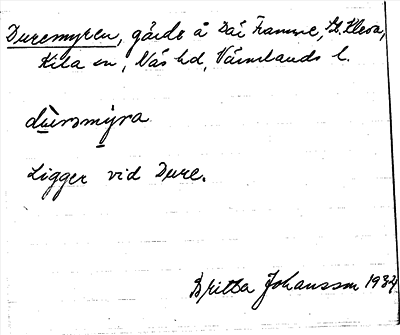 Duremyren, gärde å Där Framme, St. Kleva,
Kila sn, Näs hd, Värmlands l.
dùrsmy̱ra
Ligger vid Dure.
Britta Johansson 1934